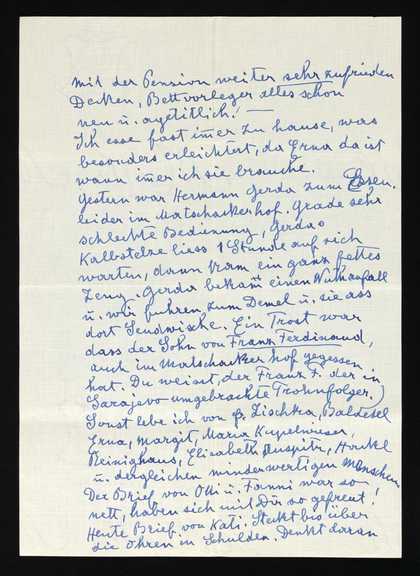 mit der Pension weiter sehr zufrieden
Decken, Bettvorleger alles schon
neu u. apetitlich! —
Ich esse fast imer zu hause, was
besonders erleichtert, da Erna da ist
wann imer ich sie brauche.
Gestern war Hermann Gerda zum Essen.
leider im Matschakerhof. Grade sehr
schlechte Bedienung, Gerdas
Kalbstelze liess 1 Stunde auf sich
warten, dann kam ein ganz fettes
Zeug. Gerda bekam einen Wuthanfall
u. wir fuhren zum Demel u. sie ass
dort Sendwische. Ein Trost war
dass der Sohn von Franz Ferdinand,
auch im Matschakker hof gegessen
hat. Du weisst, der Franz F. der in
Sarajevo umgebrachte Trohnfolger.)
Sonst lebe ich von Zischka, Baldessl
Erna, Margit, Maria Kupelwieser,
Reinighaus, Elisabeth Auspitz, Henkel
u. dergleichen minderwertigen Menschen
Der Brief von Olli u. Fanni war so
nett, haben sich mit Dir so gefreut!
Heute Brief von Kati. Steckt bis über
die Ohren in Schulden. Denkt daran